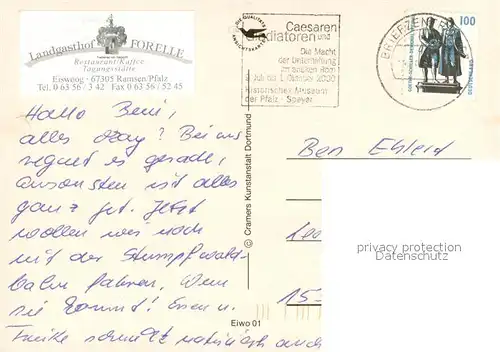 Landgasthof FORELLE
Restaurant-Kaffee
Tagungsstätte
Eiswoog · 67305 Ramsen/Pfalz
Tel. 0 63 56 / 3 42 Fax 0 63 56 / 52 45
Caesaren
und
Gladiatoren
Die Macht
der Unterhaltung
im antiken Rom
9. Juli bis 1. Oktober 2000
Historisches Museum
der Pfalz - Speyer
BRIEFZENTR
100
DEUTSCHLAND
GOETHE-SCHILLER-DENKMAL
Hallo Beni,
alles okay? Bei uns
regnet es gerade,
ansonsten ist alles
ganz gut. Jetzt
wollen wir noch
mit der Stumpfwald-
bahn fahren. Wenn
sie kommt! Essen u.
Trinke schmeckt natürlich auch
© Cramers Kunstanstalt Dortmund
Ben
15-
privacy protection
Datenschutz
Eiwo 01